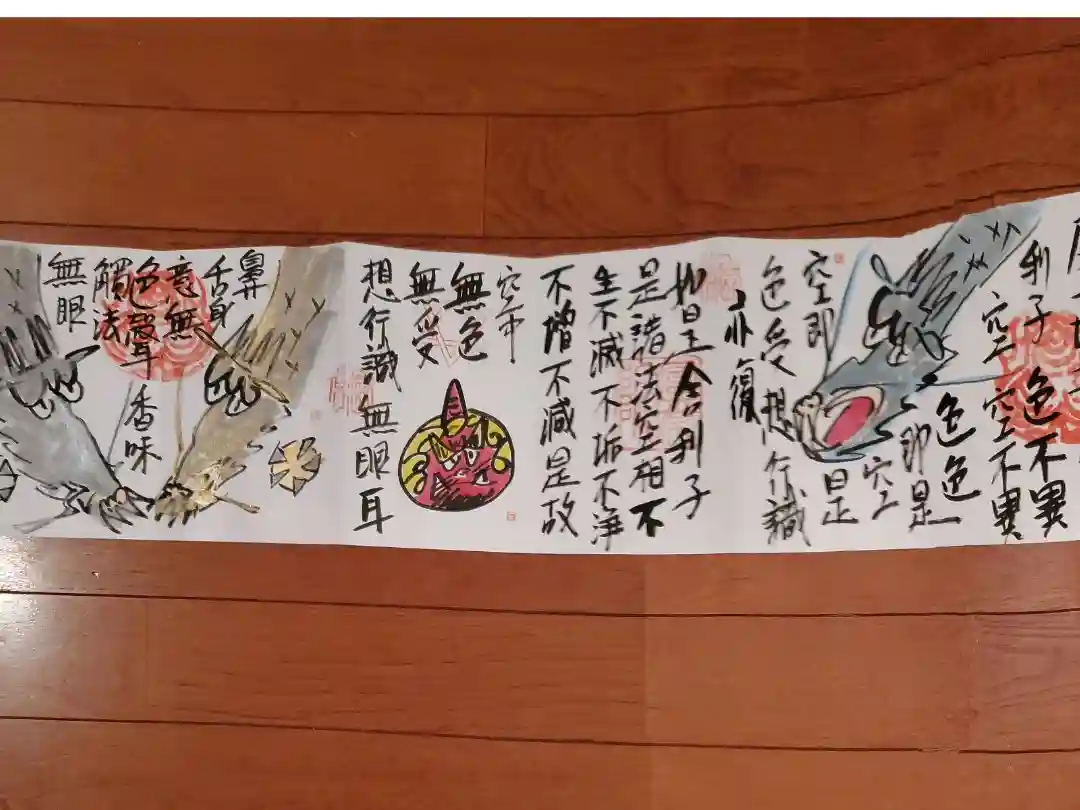 利子色不異
空空不異
色色
即是
空
空即是
色受想行識
亦復
如是舍利子
是諸法空相不
生不滅不垢不淨
不増不減是故
空中
無色
無受
想行識無眼耳
鼻
舌身
意無
色聲
香味
觸法
無眼